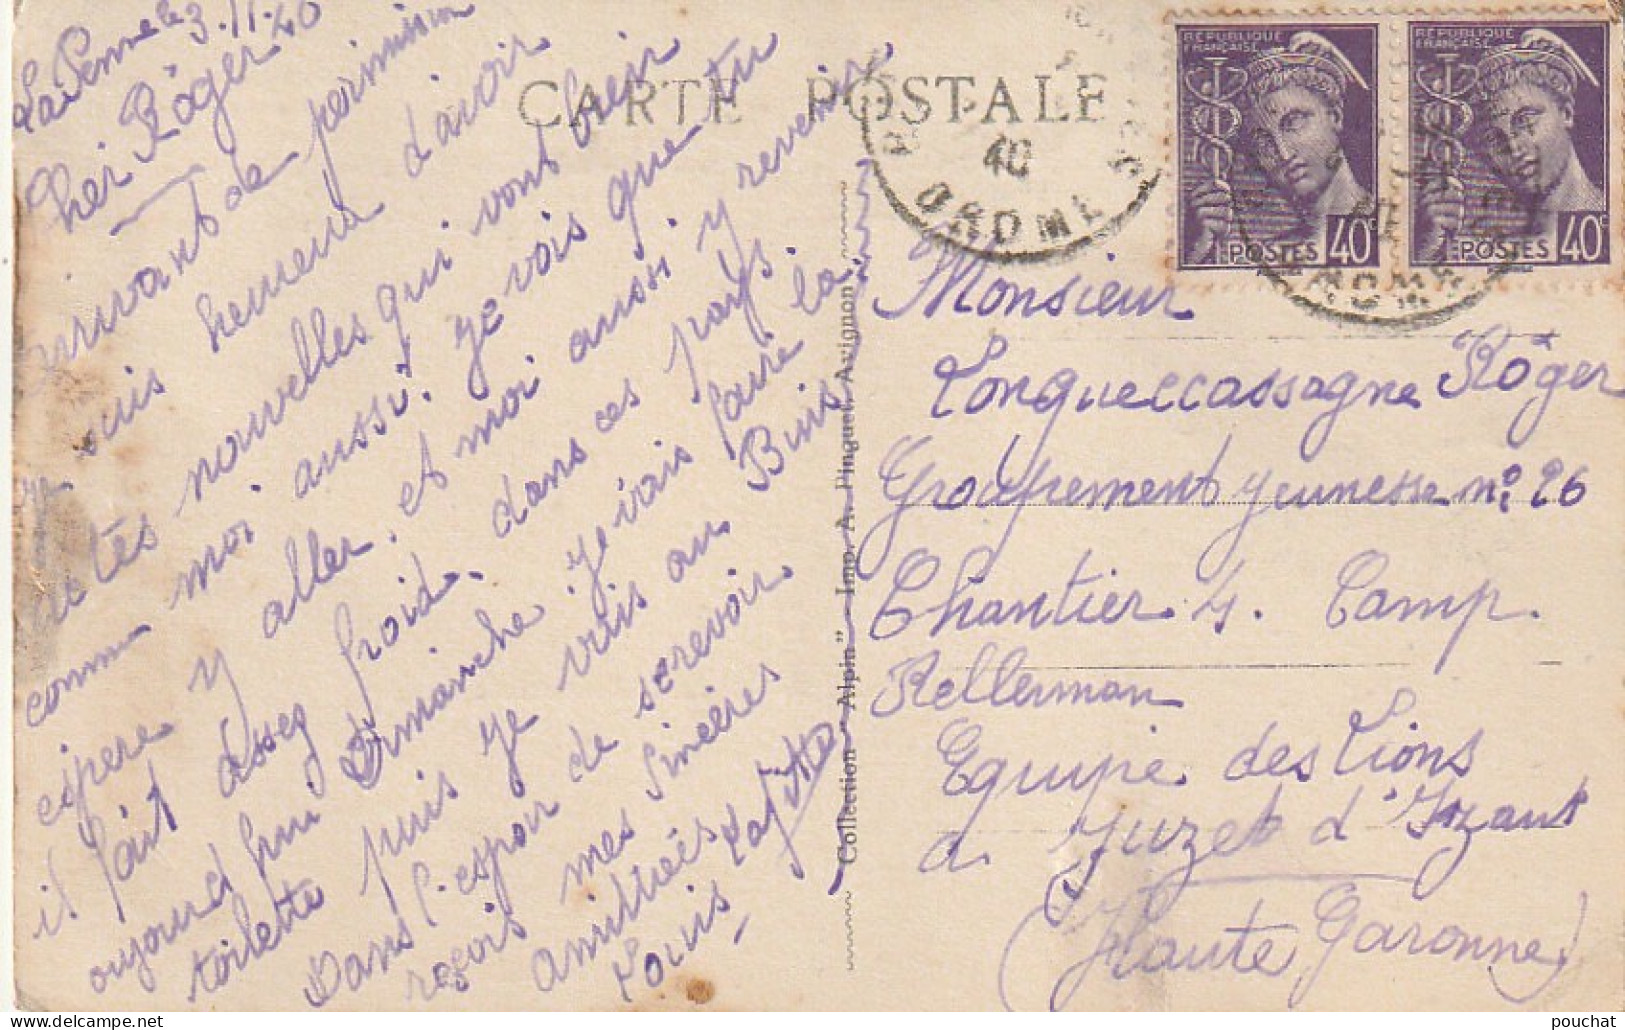 La Penne le 3.11.40
Cher Röger
arrivant de permission
je suis heureux d'avoir
de tes nouvelles qui vont bien
comm moi aussi. je vois que tu
espere y aller. et moi aussi y revenir
il fait assez froid. dans ces pays.
aujourd'hui Dimanche je vais faire la
toilette puis je vais au Buis
Dans l'espoir de se revoir
reçois mes sincères
amitiées
Louis Lafitte
CARTE POSTALE
40
DROME
REPUBLIQUE FRANÇAISE
POSTES 40c
REPUBLIQUE FRANÇAISE
POSTES 40c
DROME
Collection "Alpin" - Imp. A. Pinguet. Avignon
Monsieur
Longueccassagne Röger
Groupement jeunesse n° 26
Chantier 4. Camp.
Kellerman
Equipe des Lions
a Juzet d'Izaut
(Haute Garonne)
pouchat